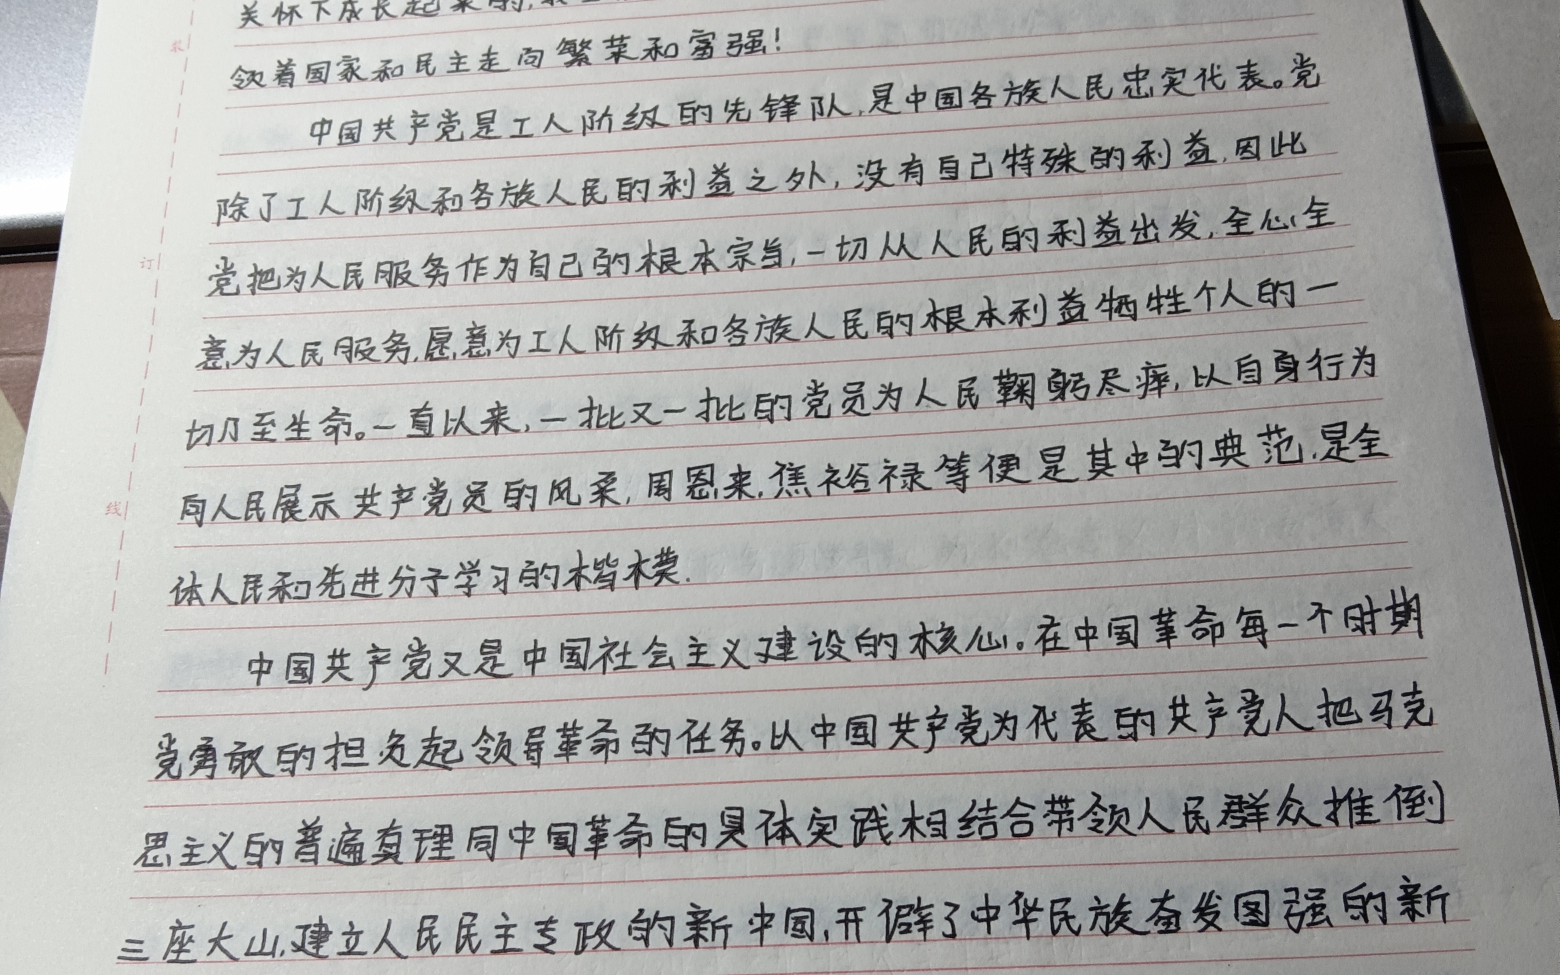 关怀下成长起来的,
领着国家和民主走向繁荣和富强!
中国共产党是工人阶级的先锋队,是中国各族人民忠实代表。党
除了工人阶级和各族人民的利益之外,没有自己特殊的利益,因此
党把为人民服务作为自己的根本宗旨,一切从人民的利益出发,全心全
意为人民服务,愿意为工人阶级和各族人民的根本利益牺牲个人的一
切乃至生命。一直以来,一批又一批的党员为人民鞠躬尽瘁,以自身行为
向人民展示共产党员的风采,周恩来,焦裕禄等便是其中的典范,是全
体人民和先进分子学习的楷模.
中国共产党又是中国社会主义建设的核心。在中国革命每一个时期
党勇敢的担负起领导革命的任务。以中国共产党为代表的共产党人把马克
思主义的普遍真理同中国革命的具体实践相结合带领人民群众推倒
三座大山,建立人民民主专政的新中国,开僻了中华民族奋发图强的新
装
订
线